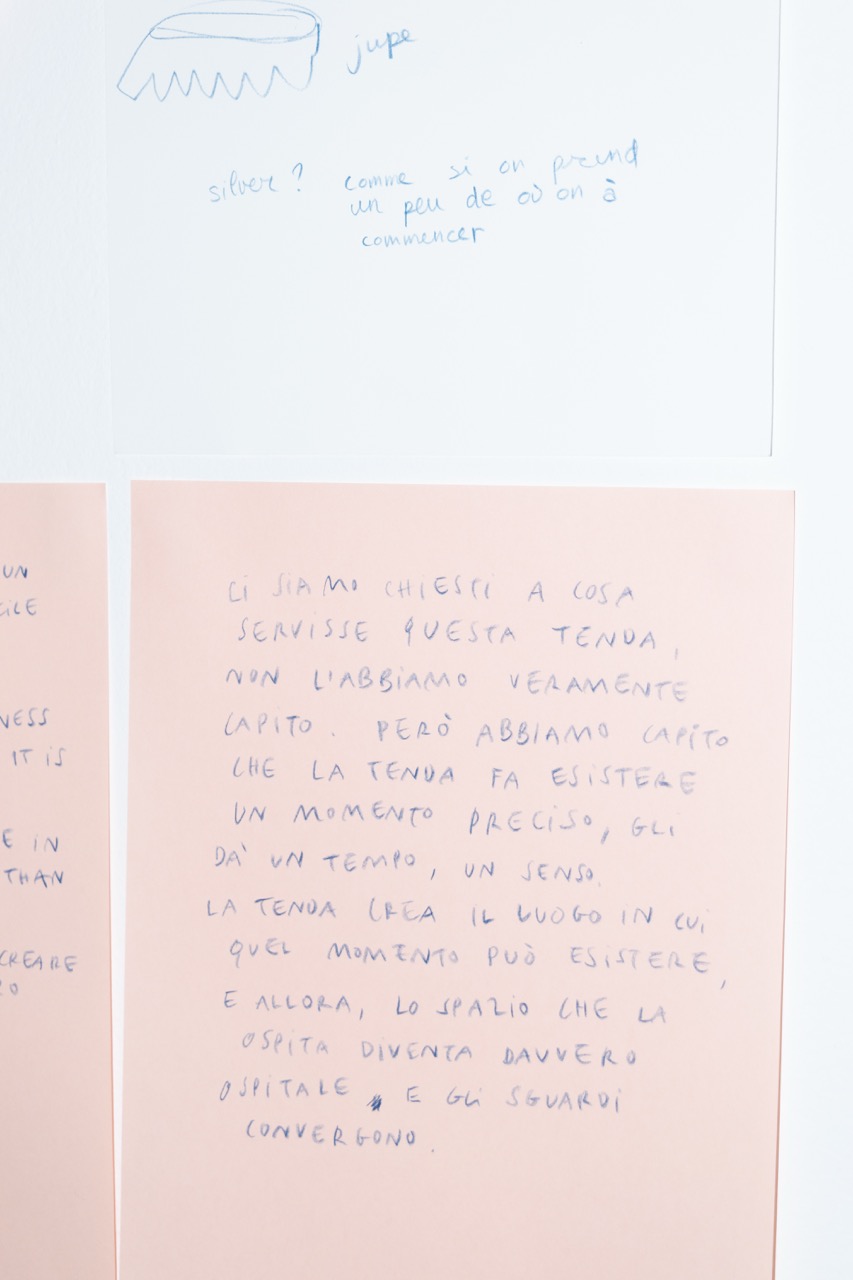 jupe
silver ? comme si on prend
un peu de où on à
commencer
UN
CILE
NESS
IT IS
E IN
THAN
CREARE
RO
CI SIAMO CHIESTI A COSA
SERVISSE QUESTA TENDA,
NON L'ABBIAMO VERAMENTE
CAPITO. PERÒ ABBIAMO CAPITO
CHE LA TENDA FA ESISTERE
UN MOMENTO PRECISO, GLI
DA' UN TEMPO, UN SENSO.
LA TENDA CREA IL LUOGO IN CUI
QUEL MOMENTO PUÒ ESISTERE,
E ALLORA, LO SPAZIO CHE LA
OSPITA DIVENTA DAVVERO
OSPITALE E GLI SGUARDI
CONVERGONO.